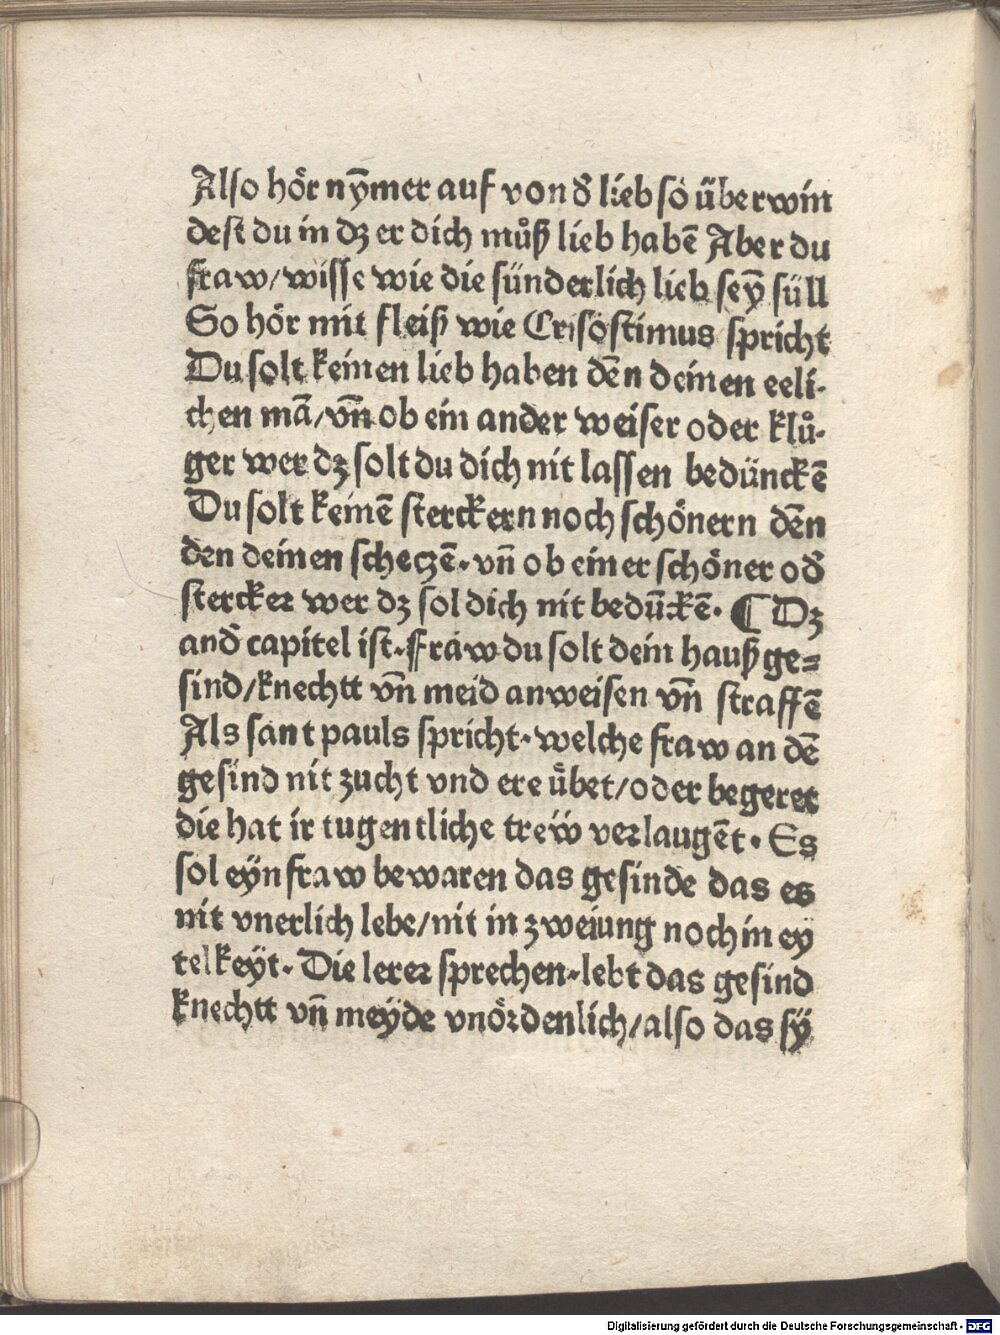 Also hör nȳmer auf von d̄ lieb so überwin
dest du in dz er dich můß lieb habē Aber du
fraw/wisse wie die sünderlich lieb seȳ süll
So hör mit fleiß wie Crisostimus spricht
Du solt keinen lieb haben dēn deinen eeli-
chen mā/vn̄ ob ein ander weiser oder klů-
ger wer dz solt du dich nit lassen bedünckē
Du solt keinē sterckern noch schönern dēn
den deinen scheczē. vn̄ ob einer schöner od̄
stercker wer dz sol dich nit bedünckē. ¶ Dz
and̄ capitel ist. Fraw du solt dein haußge=
sind/knechtt vn̄ meid anweisen vn̄ straffē
Als sant pauls spricht. welche fraw an dē
gesind nit zucht vnd ere übet/oder begeret
die hat ir tugentliche treẅ verlaugēt. Es
sol eyn fraw bewaren das gesinde das es
nit vnerlich lebe/nit in zweiung noch in ey
telkeÿt. Die lerer sprechen. lebt das gesind
knechtt vn̄ meÿde vnördenlich/also das sÿ
Digitalisierung gefördert durch die Deutsche Forschungsgemeinschaft - DFG